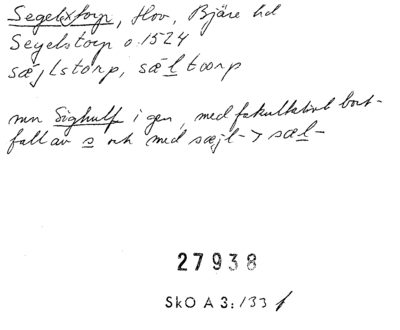 Segelstorp, Hov, Bjäre hd
Segelstorp o. 1524
sæjlstorp, sæltoorp
mn Sighulf i gen, med fakultativt bort-
fall av s och med sæjl- > sæl-
27938
SkO A 3:133 f